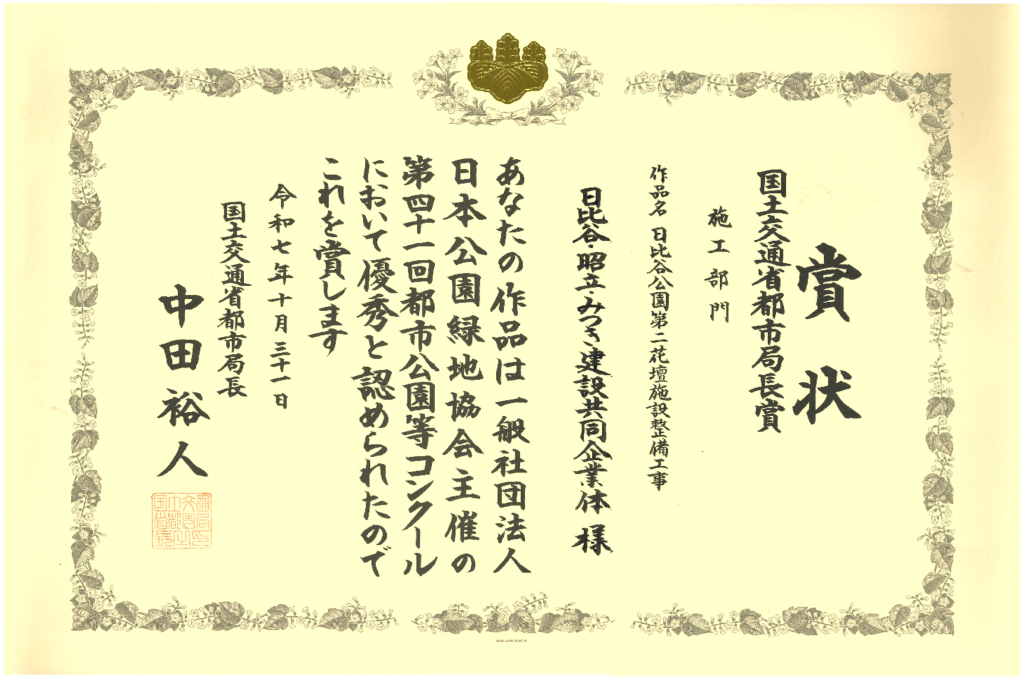 賞状
国土交通省都市局長賞
施工部門
作品名 日比谷公園第二花壇施設整備工事
日比谷・昭立・みつぎ建設共同企業体 様
あなたの作品は一般社団法人
日本公園緑地協会主催の
第四十一回都市公園等コンクール
において優秀と認められたので
これを賞します
令和七年十月三十一日
国土交通省都市局長
中田裕人